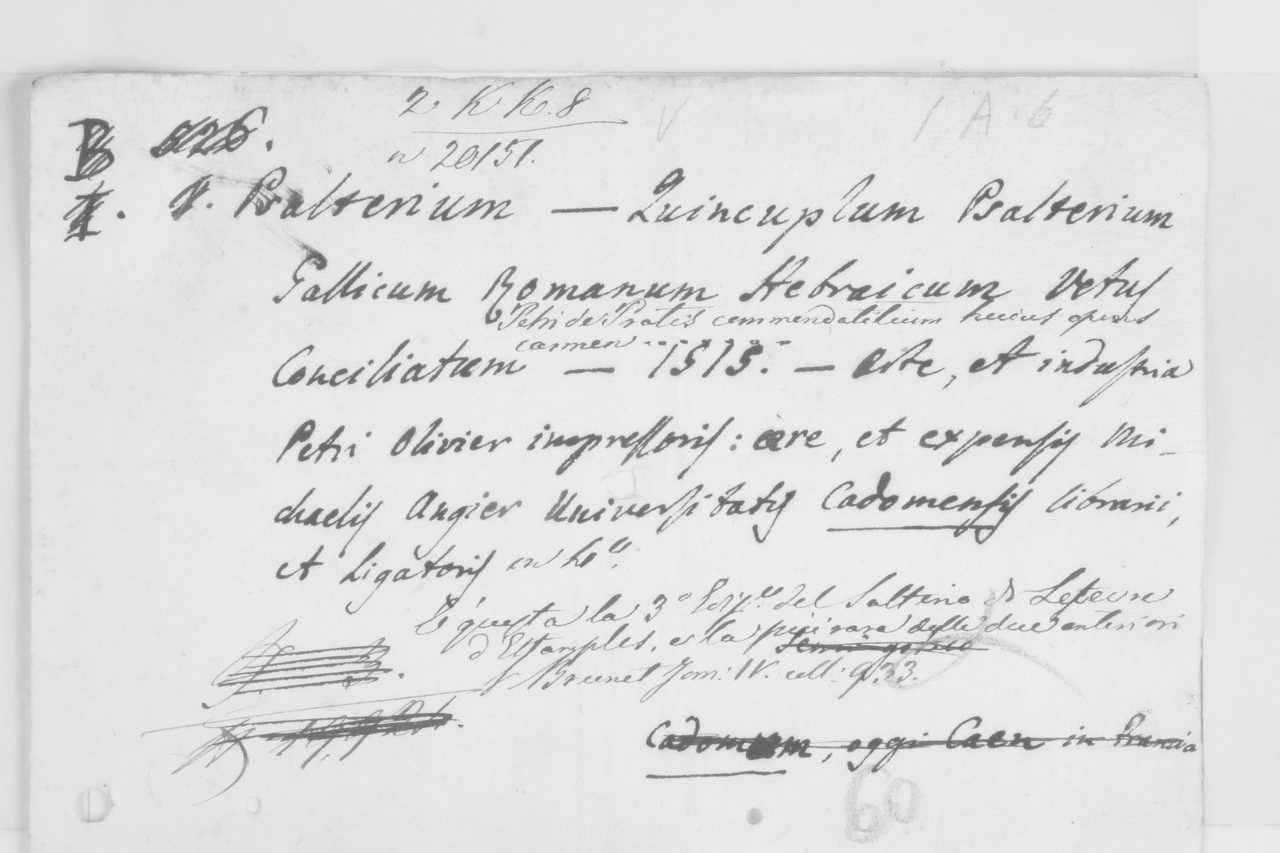 2 K K. 8
1 A 6
B 826.
n 20151.
V. Psalterium — Quincuplum Psalterium
Gallicum Romanum Hebraicum Vetus
Petri de Pratis commendatitium huius operis
carmen
Conciliatum — 1515. — arte, et industria
Petri Olivier impressoris: aere, et expensis Mi-
chaelis Angier Universitatis Cadomensis librarii,
et Ligatoris in 4º.
È questa la 3ª Ediz.e del Saltino di Lefevre
d'Etamples, e la più rara delle due anteriori
Brunet Tom: IV. coll: 933.
Cadomum, oggi Caen in Francia
60